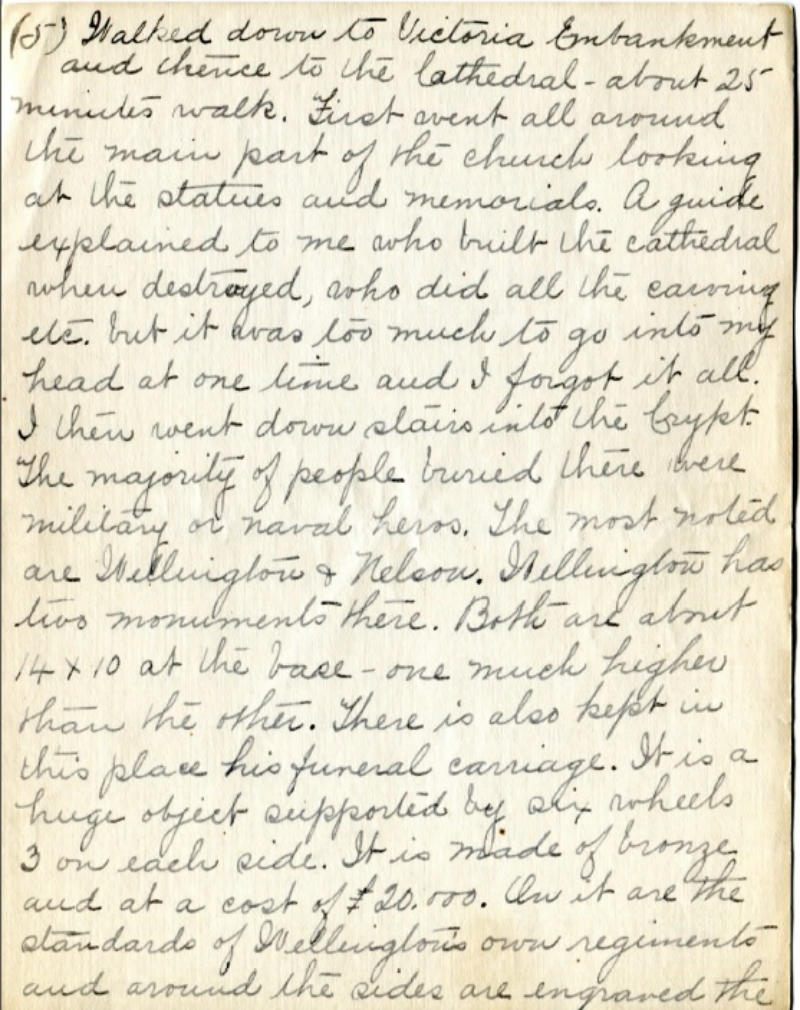 (5) Walked down to Victoria Embankment
and thence to the Cathedral - about 25
minutes walk. First went all around
the main part of the church looking
at the statues and memorials. A guide
explained to me who built the cathedral
when destroyed, who did all the carving
etc. but it was too much to go into my
head at one time and I forgot it all.
I then went down stairs into the Crypt.
The majority of people buried there were
military or naval heros. The most noted
are Wellington & Nelson. Wellington has
two monuments there. Both are about
14 x 10 at the base - one much higher
than the other. There is also kept in
this place his funeral carriage. It is a
huge object supported by six wheels
3 on each side. It is made of bronze
and at a cost of £20.000. On it are the
standards of Wellington's own regiments
and around the sides are engraved the